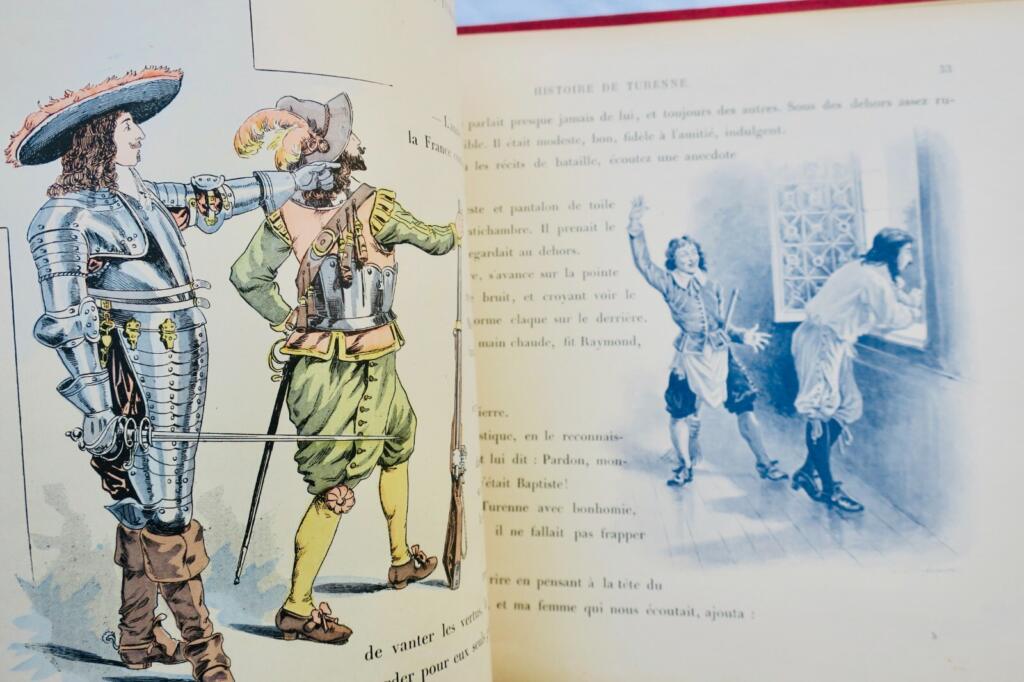 la France
de vanter les vertus,
der pour eux seuls
HISTOIRE DE TURENNE
33
parlait presque jamais de lui, et toujours des autres. Sous des dehors assez ru-
ible. Il était modeste, bon, fidèle à l'amitié, indulgent.
les récits de bataille, écoutez une anecdote
ste et pantalon de toile
tichambre. Il prenait le
egardait au dehors.
e, s'avance sur la pointe
e bruit, et croyant voir le
orme claque sur le derrière.
main chaude, fit Raymond,
ierre.
stique, en le reconnais-
t lui dit : Pardon, mon-
'était Baptiste!
Turenne avec bonhomie,
il ne fallait pas frapper
rire en pensant à la tête du
, et ma femme qui nous écoutait, ajouta :